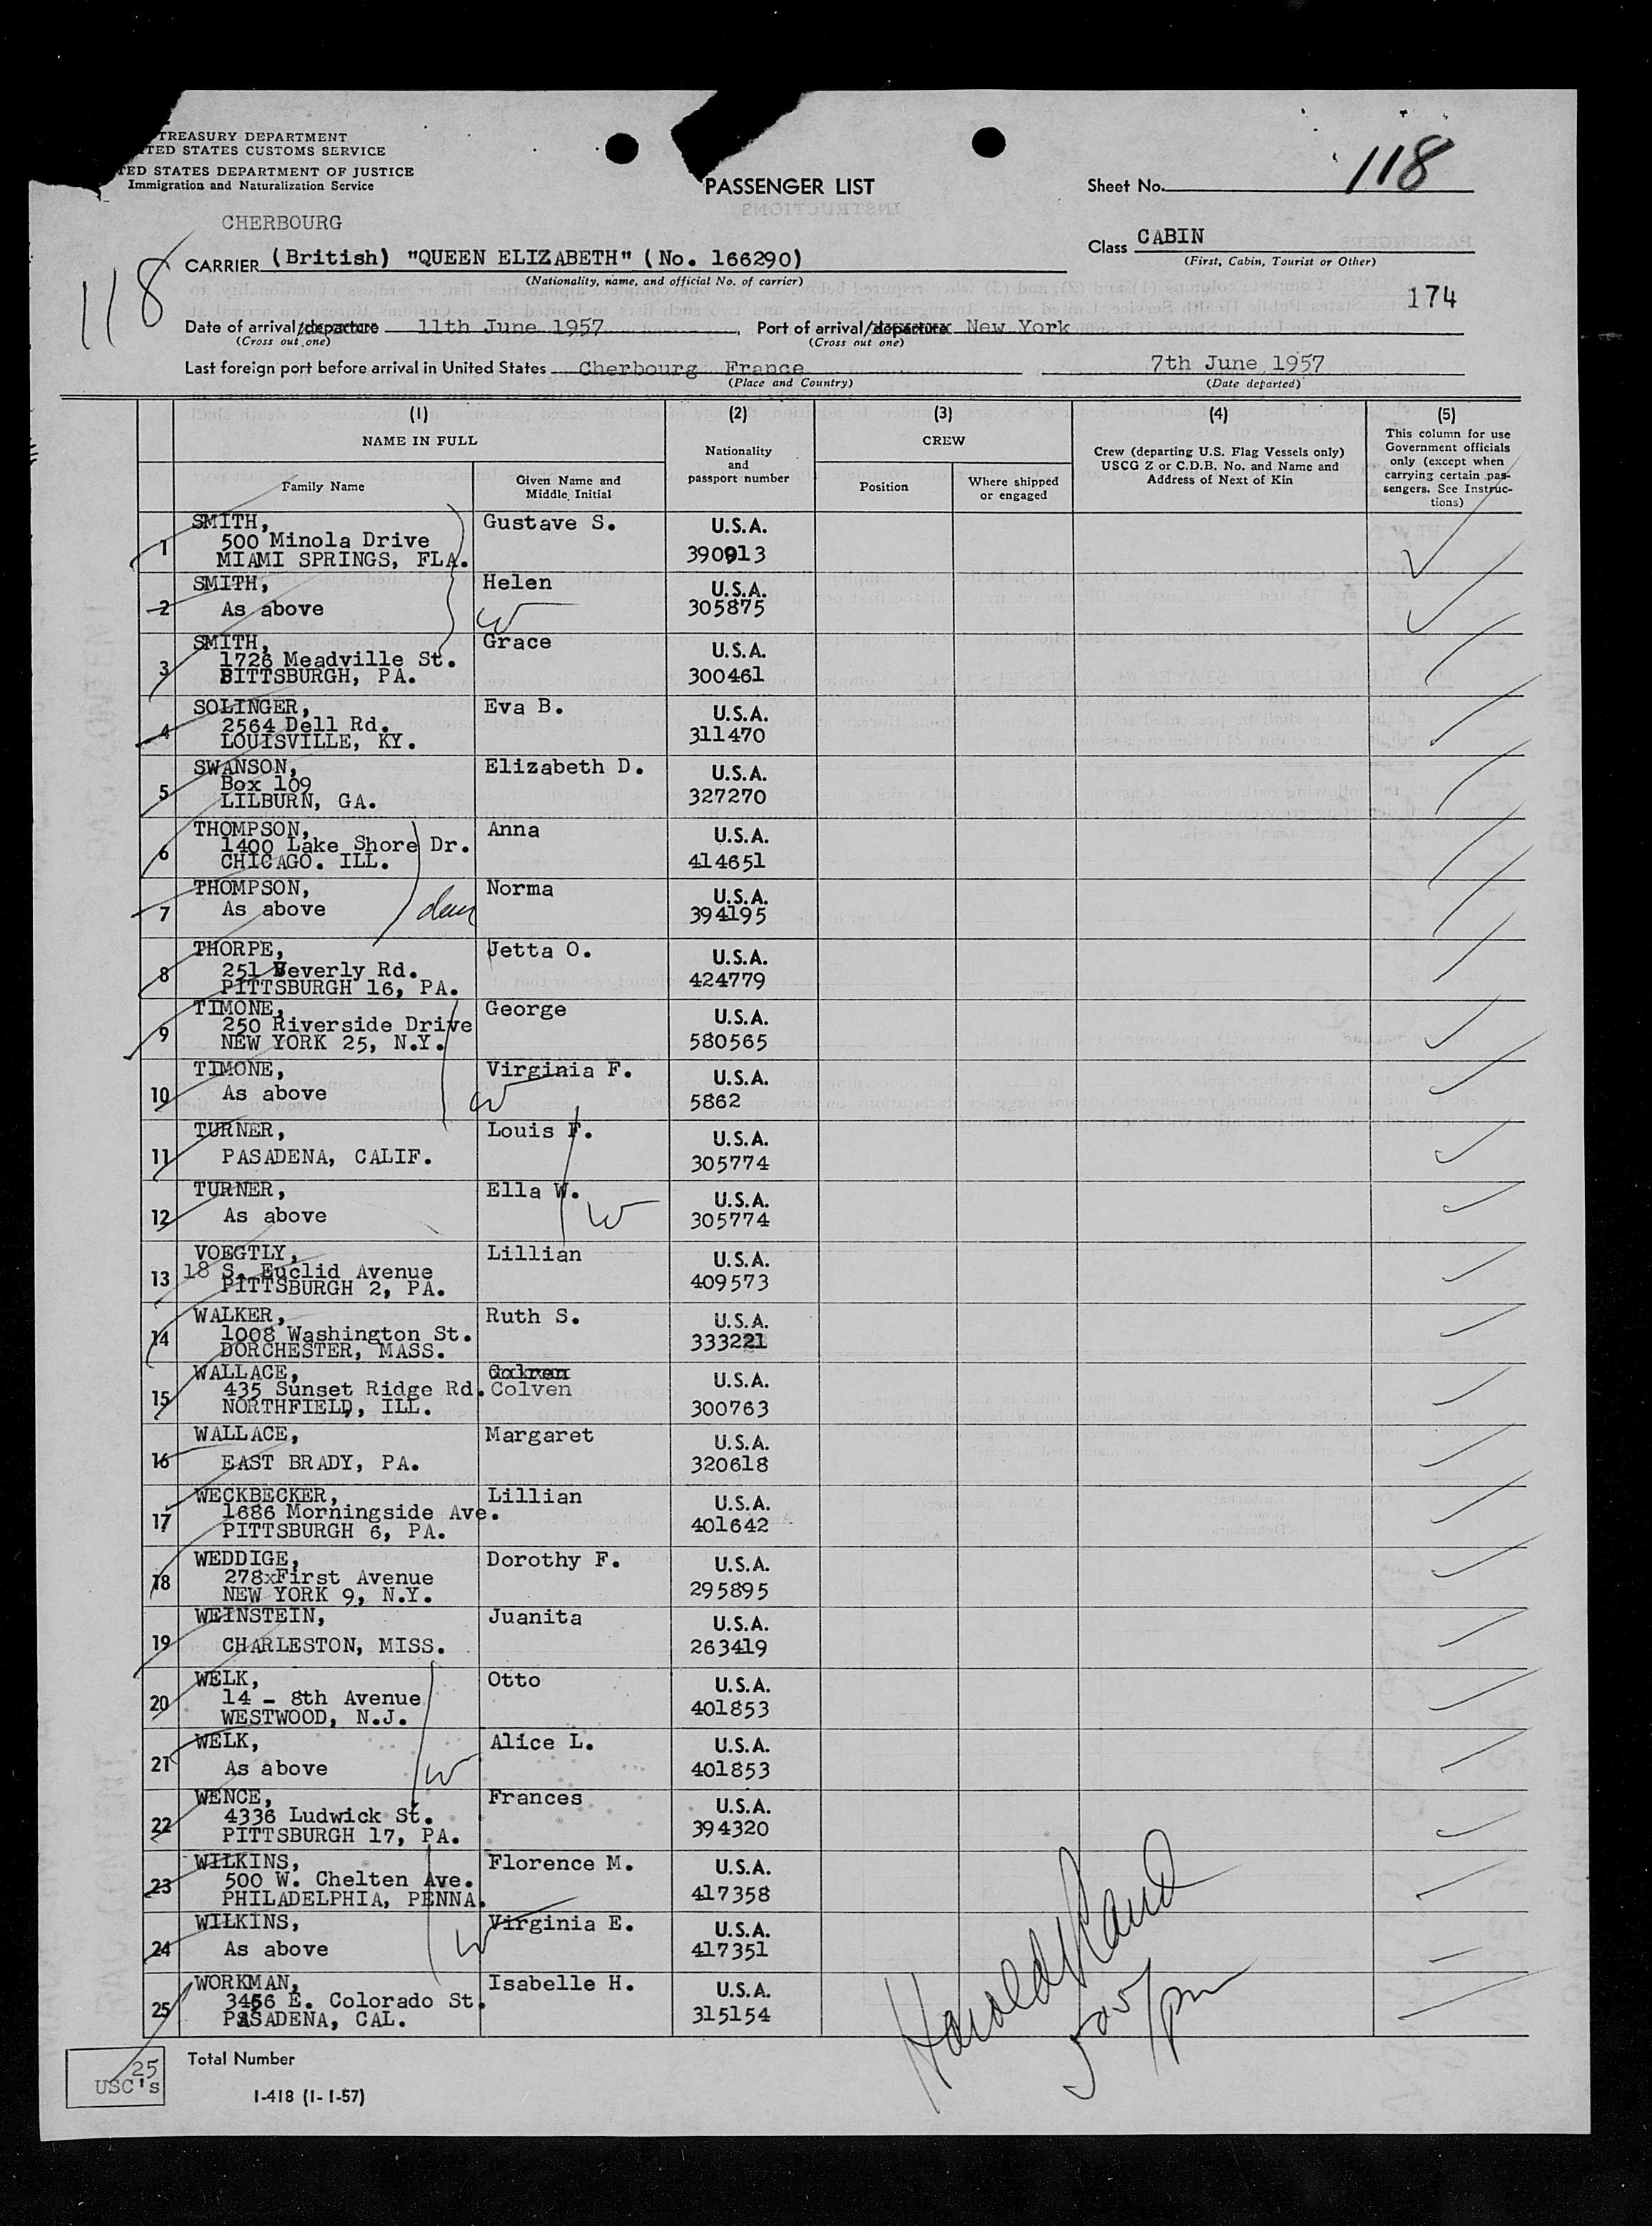 TREASURY DEPARTMENT
TED STATES CUSTOMS SERVICE
TED STATES DEPARTMENT OF JUSTICE
Immigration and Naturalization Service
PASSENGER LIST
Sheet No. 118
CHERBOURG
118
CARRIER (British) "QUEEN ELIZABETH" (No. 166290)
(Nationality, name, and official No. of carrier)
Class CABIN
(First, Cabin, Tourist or Other)
174
Date of arrival/departure 11th June 1957
(Cross out one)
Port of arrival/departure New York
(Cross out one)
Last foreign port before arrival in United States Cherbourg France
(Place and Country)
7th June 1957
(Date departed)
(1) (2) (3) (4) (5)
NAME IN FULL
Family Name
Given Name and Middle Initial
Nationality and passport number
CREW
Position
Where shipped or engaged
Crew (departing U.S. Flag Vessels only) USCG Z or C.D.B. No. and Name and Address of Next of Kin
This column for use Government officials only (except when carrying certain passengers. See Instructions)
1 SMITH, Gustave S. U.S.A.
500 Minola Drive
MIAMI SPRINGS, FLA. 390913
2 SMITH, Helen U.S.A.
As above W 305875
3 SMITH, Grace U.S.A.
1726 Meadville St.
PITTSBURGH, PA. 300461
4 SOLINGER, Eva B. U.S.A.
2564 Dell Rd.
LOUISVILLE, KY. 311470
5 SWANSON, Elizabeth D. U.S.A.
Box 109
LILBURN, GA. 327270
6 THOMPSON, Anna U.S.A.
1400 Lake Shore Dr.
CHICAGO. ILL. 414651
7 THOMPSON, Norma U.S.A.
As above 394195
8 THORPE, Jetta O. U.S.A.
251 Beverly Rd.
PITTSBURGH 16, PA. 424779
9 TIMONE, George U.S.A.
250 Riverside Drive
NEW YORK 25, N.Y. 580565
10 TIMONE, Virginia F. U.S.A.
As above W 5862
11 TURNER, Louis F. U.S.A.
PASADENA, CALIF. 305774
12 TURNER, Ella W. U.S.A.
As above W 305774
13 VOEGTLY, Lillian U.S.A.
18 S. Euclid Avenue
PITTSBURGH 2, PA. 409573
14 WALKER, Ruth S. U.S.A.
1008 Washington St.
DORCHESTER, MASS. 333221
15 WALLACE, U.S.A.
435 Sunset Ridge Rd. Colven
NORTHFIELD, ILL. 300763
16 WALLACE, Margaret U.S.A.
EAST BRADY, PA. 320618
17 WECKBECKER, Lillian U.S.A.
1686 Morningside Ave.
PITTSBURGH 6, PA. 401642
18 WEDDIGE, Dorothy F. U.S.A.
278xFirst Avenue
NEW YORK 9, N.Y. 295895
19 WEINSTEIN, Juanita U.S.A.
CHARLESTON, MISS. 263419
20 WELK, Otto U.S.A.
14 - 8th Avenue
WESTWOOD, N.J. 401853
21 WELK, Alice L. U.S.A.
As above W 401853
22 WENCE, Frances U.S.A.
4336 Ludwick St.
PITTSBURGH 17, PA. 394320
23 WILKINS, Florence M. U.S.A.
500 W. Chelten Ave.
PHILADELPHIA, PENNA. 417358
24 WILKINS, Virginia E. U.S.A.
As above W 417351
25 WORKMAN, Isabelle H. U.S.A.
3466 E. Colorado St.
PASADENA, CAL. 315154
Harold
pm
25
USC's
Total Number
I-418 (1-1-57)